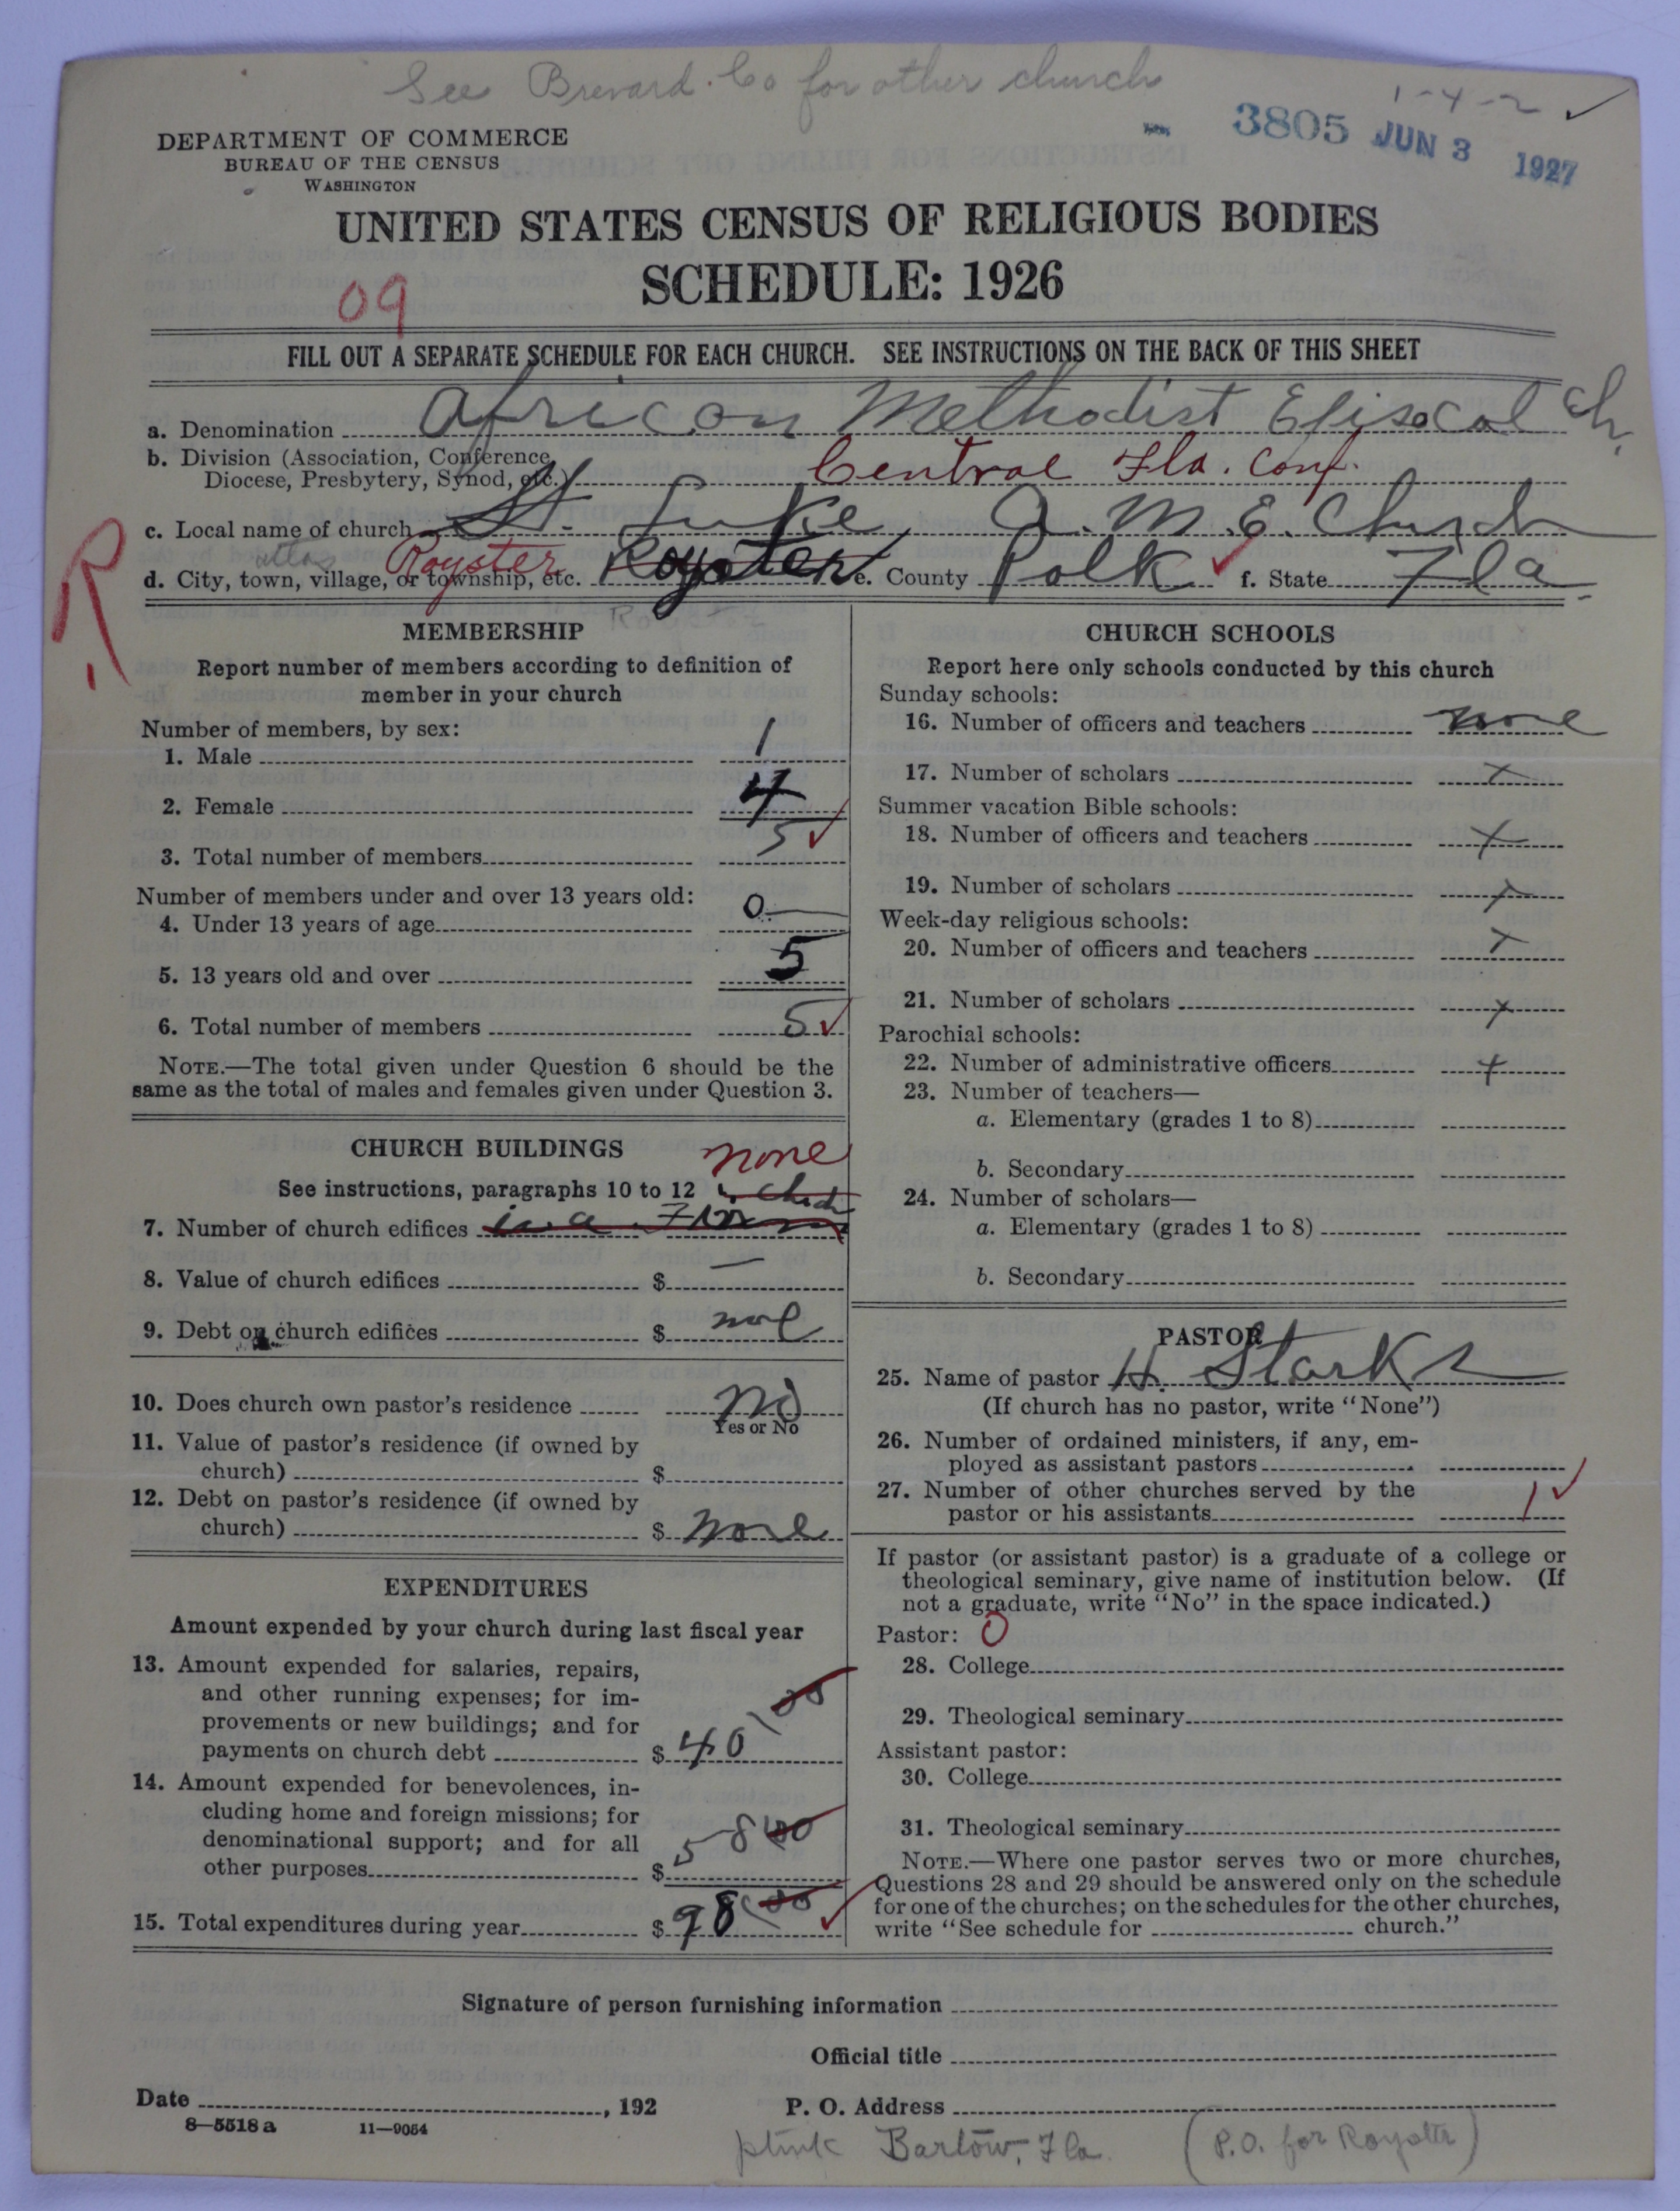 See Brevard. Co for other church
1-4-2 ✓
3805 JUN 3 1927
DEPARTMENT OF COMMERCE
BUREAU OF THE CENSUS
WASHINGTON
UNITED STATES CENSUS OF RELIGIOUS BODIES
SCHEDULE: 1926
09
FILL OUT A SEPARATE SCHEDULE FOR EACH CHURCH. SEE INSTRUCTIONS ON THE BACK OF THIS SHEET
a. Denomination African Methodist Episcocal Ch.
b. Division (Association, Conference,
Diocese, Presbytery, Synod, etc.) Central Fla. Conf.
c. Local name of church St. Luke A. M. E. Church
R
atlas Royster
d. City, town, village, or township, etc. Royster e. County Polk ✓ f. State Fla.
MEMBERSHIP
Report number of members according to definition of
member in your church
Number of members, by sex:
1. Male 1
2. Female 4
3. Total number of members 5 ✓
Number of members under and over 13 years old:
4. Under 13 years of age 0
5. 13 years old and over 5
6. Total number of members 5 ✓
NOTE.—The total given under Question 6 should be the
same as the total of males and females given under Question 3.
CHURCH BUILDINGS
none
See instructions, paragraphs 10 to 12
7. Number of church edifices in a
8. Value of church edifices $ —
9. Debt on church edifices $ none
10. Does church own pastor's residence No
Yes or No
11. Value of pastor's residence (if owned by
church) $
12. Debt on pastor's residence (if owned by
church) $ none
EXPENDITURES
Amount expended by your church during last fiscal year
13. Amount expended for salaries, repairs,
and other running expenses; for im-
provements or new buildings; and for
payments on church debt $ 40 00
14. Amount expended for benevolences, in-
cluding home and foreign missions; for
denominational support; and for all
other purposes $ 58 00
15. Total expenditures during year $ 98 00 ✓
CHURCH SCHOOLS
Report here only schools conducted by this church
Sunday schools:
16. Number of officers and teachers none
17. Number of scholars x
Summer vacation Bible schools:
18. Number of officers and teachers x
19. Number of scholars x
Week-day religious schools:
20. Number of officers and teachers x
21. Number of scholars x
Parochial schools:
22. Number of administrative officers x
23. Number of teachers—
a. Elementary (grades 1 to 8)
b. Secondary
24. Number of scholars—
a. Elementary (grades 1 to 8)
b. Secondary
PASTOR
25. Name of pastor H. Starks
(If church has no pastor, write "None")
26. Number of ordained ministers, if any, em-
ployed as assistant pastors
27. Number of other churches served by the
pastor or his assistants 1 ✓
If pastor (or assistant pastor) is a graduate of a college or
theological seminary, give name of institution below. (If
not a graduate, write "No" in the space indicated.)
Pastor: 0
28. College
29. Theological seminary
Assistant pastor:
30. College
31. Theological seminary
NOTE.—Where one pastor serves two or more churches,
Questions 28 and 29 should be answered only on the schedule
for one of the churches; on the schedules for the other churches,
write "See schedule for church."
Signature of person furnishing information
Official title
Date , 192
P. O. Address
8—5518 a 11—9054
Bartow, Fla. (P.O. for Royster)